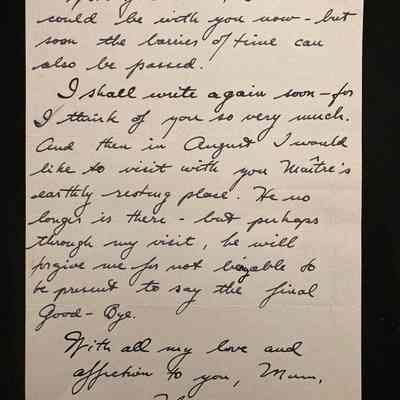 could be with you now - but
soon the barries of time can
also be passed.
I shall write again soon - for
I think of you so very much.
And then in August I would
like to visit with you Maître's
earthly resting place. He no
longer is there - but perhaps
through my visit, he will
forgive me for not being able to
be present to say the final
Good - Bye.
With all my love and
affection to you, Mum,